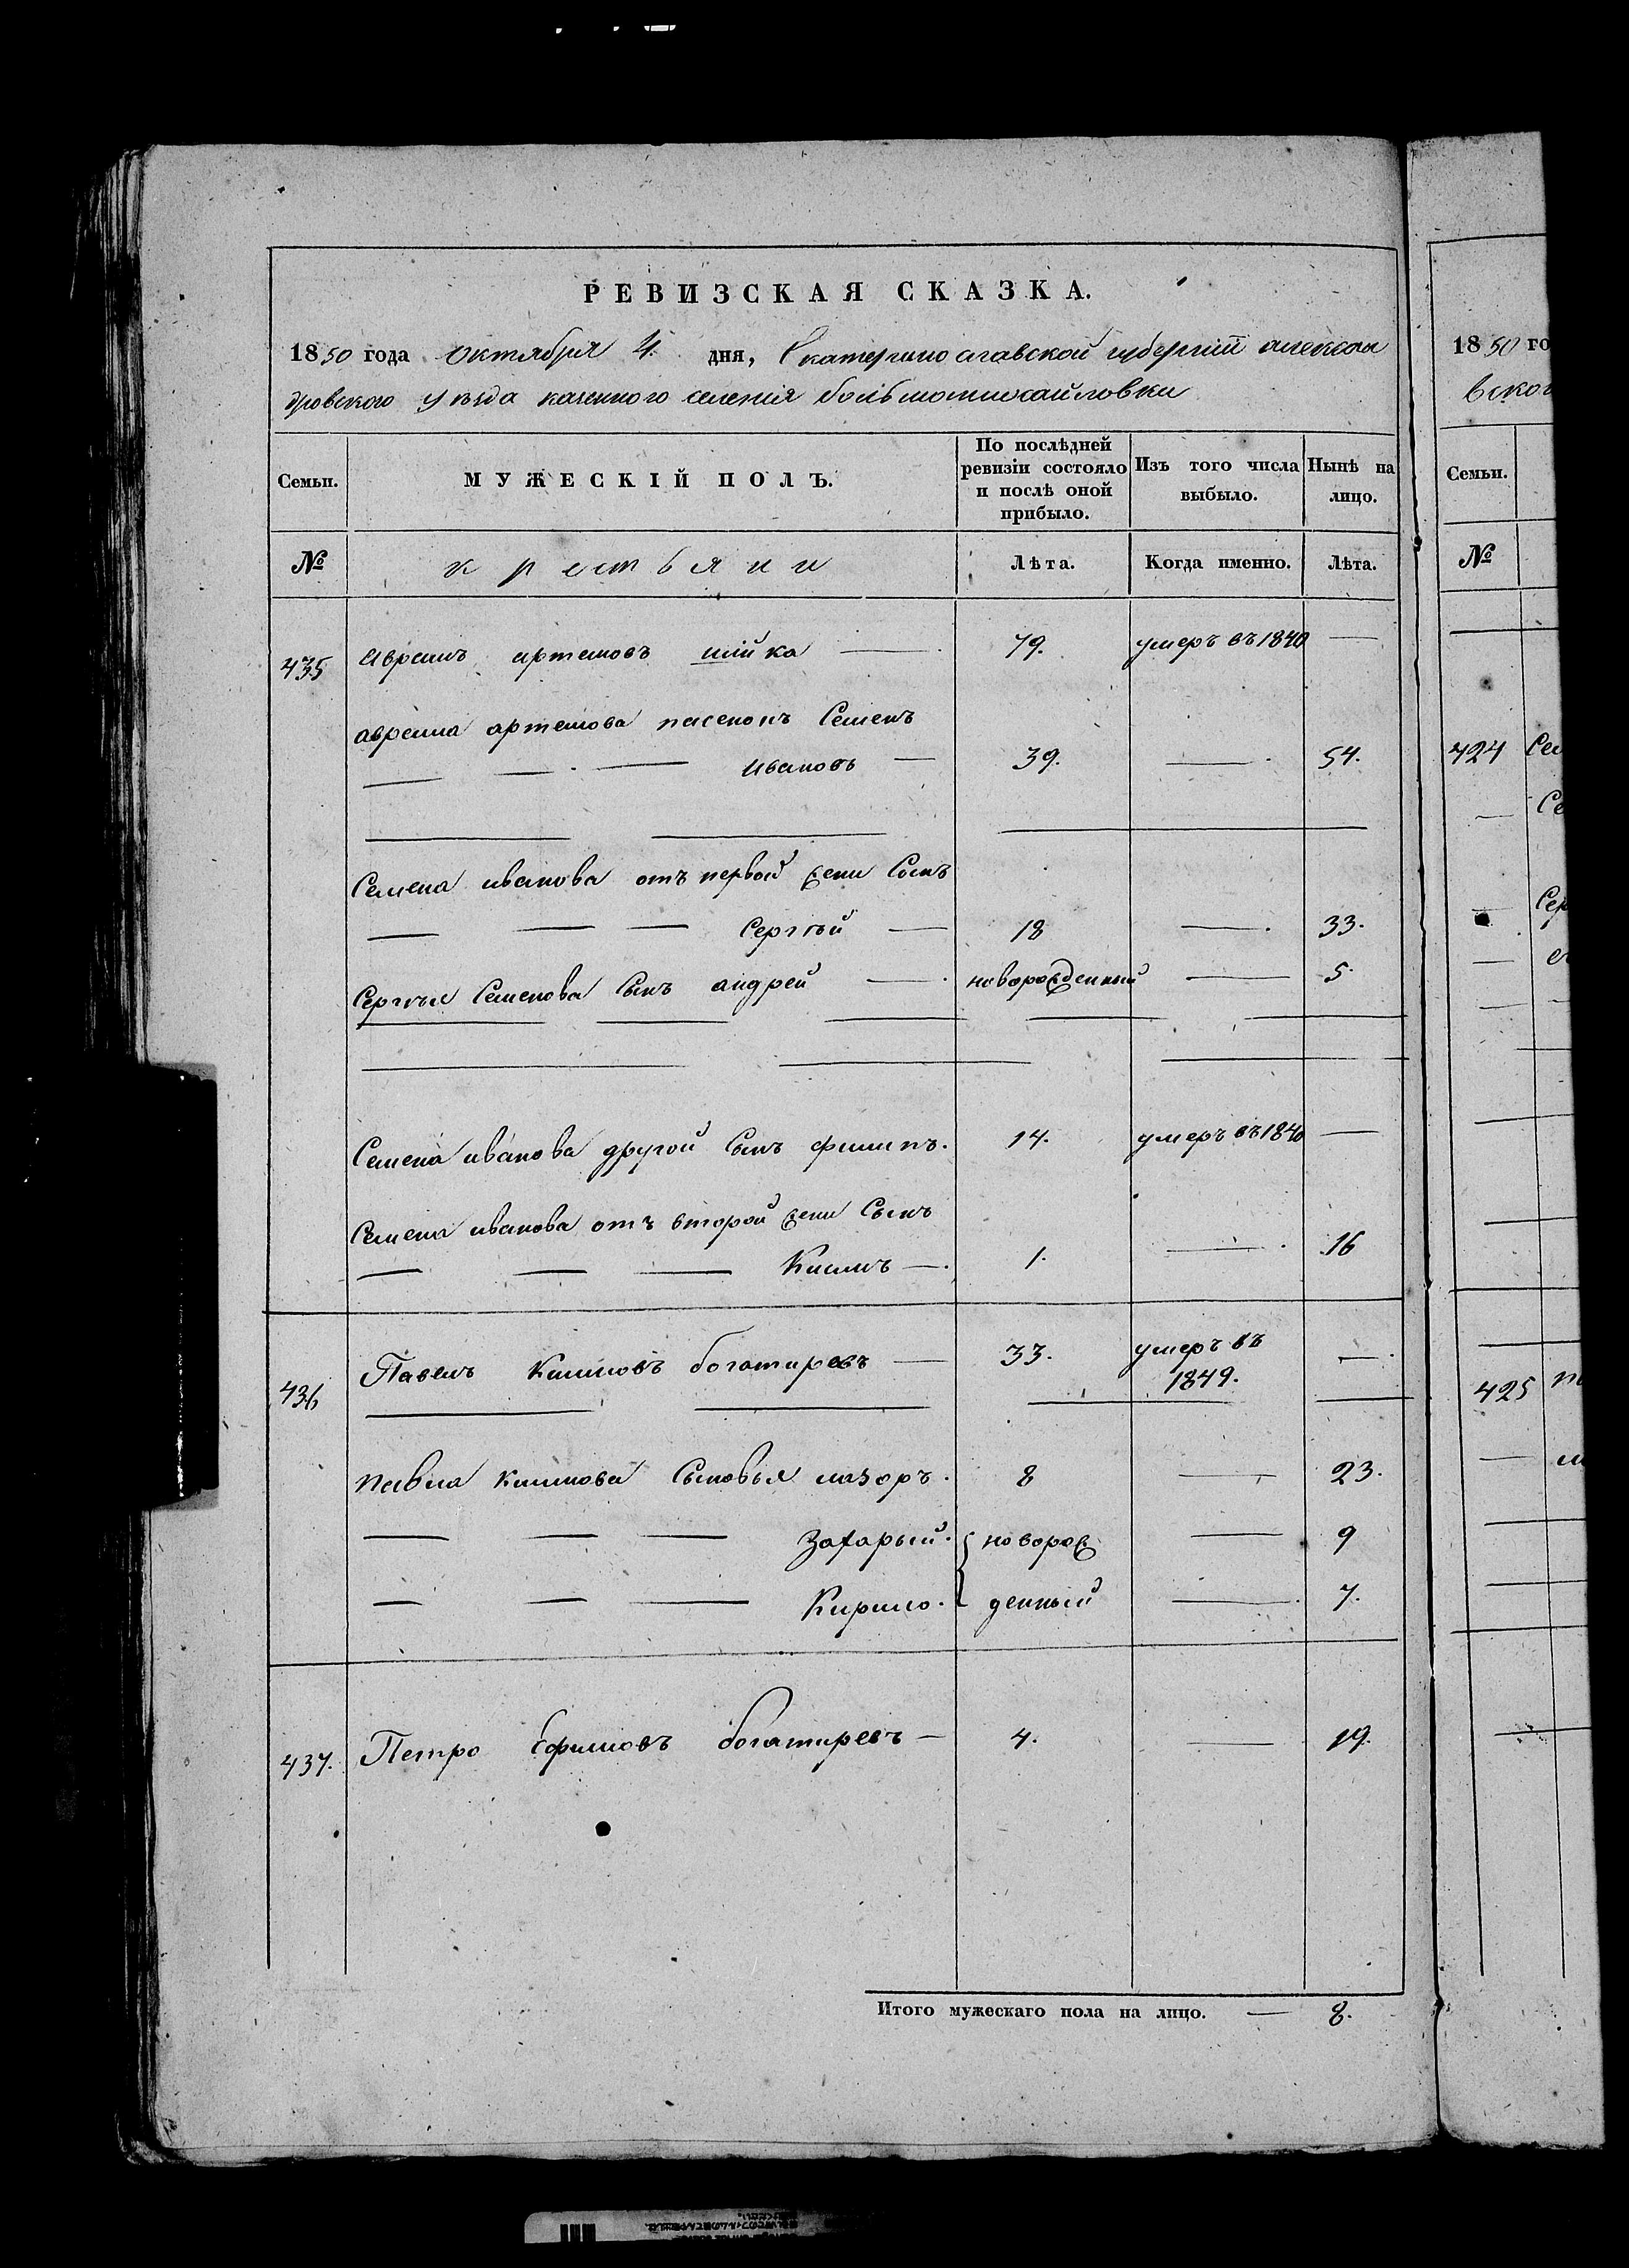 РЕВИЗСКАЯ СКАЗКА.
1850 года октября 4. дня, Екатеринославской губерній алексан
дровского уѣзда казенного селенія большомихайловки
Семьи.
МУЖЕСКІЙ ПОЛЪ.
По послѣдней ревизіи состояло и послѣ оной прибыло.
Изъ того числа выбыло.
Нынѣ на лицо.
№
крестьяни
Лѣта.
Когда именно.
Лѣта.
435 Аврамъ артемовъ шійка — 79. умеръ въ 1840 —
аврама артемова пасенокъ Семенъ
— — — Ивановъ — 39. — 54.
Семена иванова отъ первой жени Сынъ
— — — Сергѣй — 18 — 33.
Сергѣя Семенова Сынъ андрей — новорожденный — 5.
Семена иванова другой Сынъ филипъ. 14. умеръ въ 1840 —
Семена иванова отъ второй жени Сынъ
— — — Климъ — 1. — 16
436 Павелъ Климовъ богатиревъ — 33. умеръ въ 1849. —
павла климова Сыновья лазоръ. 8 — 23.
— — — Захарый. новорож — 9
— — — Кирило. денный — 7.
437. Петро Ефимовъ богатиревъ — 4. — 19.
Итого мужескаго пола на лицо. — 8.
1850 го
Семьи.
№
424
425